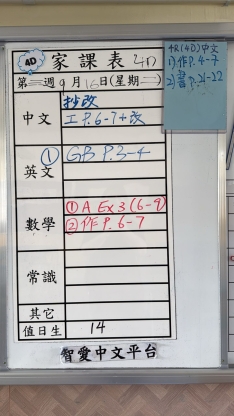 4D 家課表 4D
第三週 9月16日(星期二)
中文 抄改
工 P.6-7+改
英文 ① GB P.3-4
數學 ① A Ex 3 (6-9)
② 作 P.6-7
常識
其它
值日生 14
智愛中文平台
4R(4D)中文
1)作P.4-7
2)書P.21-22